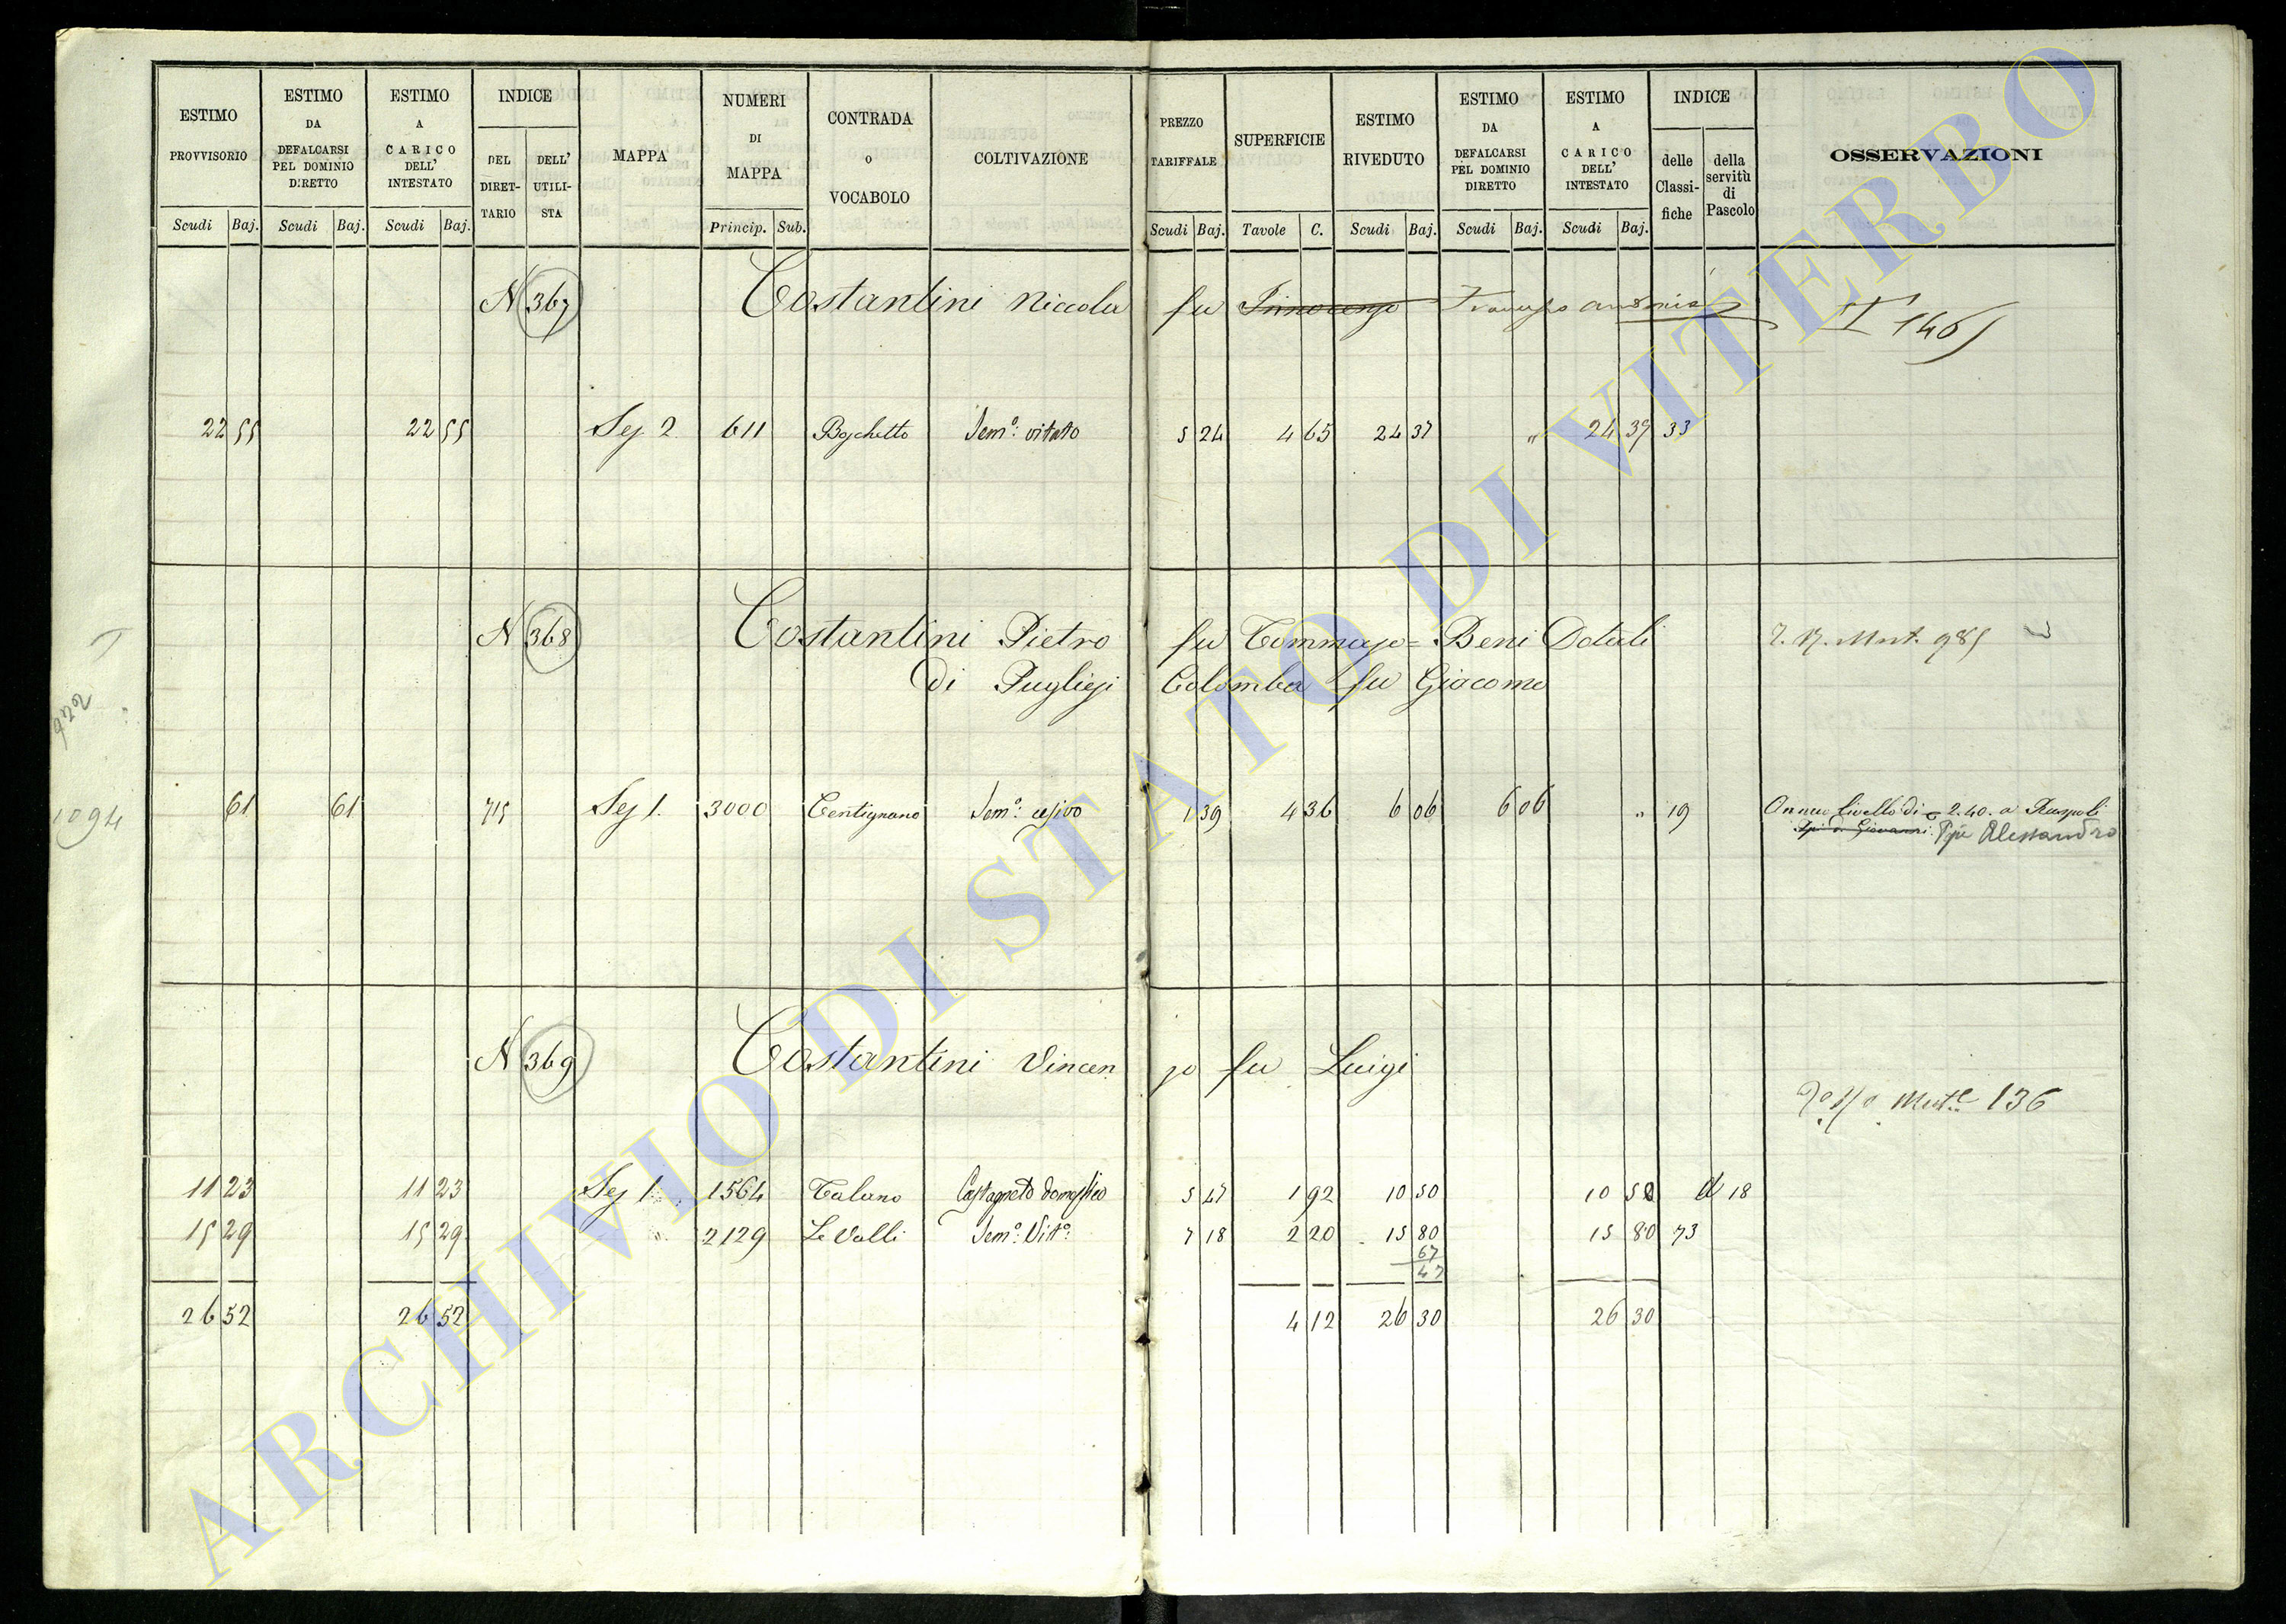 ESTIMO PROVVISORIO Scudi Baj.
ESTIMO DA DEFALCARSI PEL DOMINIO DIRETTO Scudi Baj.
ESTIMO A CARICO DELL' INTESTATO Scudi Baj.
INDICE DEL DIRET- TARIO DELL' UTILI- STA
MAPPA
NUMERI DI MAPPA Princip. Sub.
CONTRADA O VOCABOLO
COLTIVAZIONE
PREZZO TARIFFALE Scudi Baj.
SUPERFICIE Tavole C.
ESTIMO RIVEDUTO Scudi Baj.
ESTIMO DA DEFALCARSI PEL DOMINIO DIRETTO Scudi Baj.
ESTIMO A CARICO DELL' INTESTATO Scudi Baj.
INDICE delle Classi- fiche della servitù di Pascolo
OSSERVAZIONI
N 367 Costantini Niccola fu Innocenzo
22 55 22 55 Sez 2 611 Boschetto Sem.º vitato 5 24 4 65 24 37 " 24 37 33
N 368 Costantini Pietro fu Tommaso = Beni Dotali Mut. 985
di Pugliesi Colomba fu Giacomo
422
1094
61 61 715 Sez 1. 3000 Centignano Sem.º cesivo 1 39 4 36 6 06 6 06 " 19 Annuo livello di 2.40. a Ruspoli
Giovanni. Alessandro
N 369 Costantini Vincenzo fu Luigi
Mut.e 136
11 23 11 23 Sez 1. 1564 Talano Castagneto domestico 5 47 1 92 10 50 10 50 d 18
15 29 15 29 " 2129 Le Valli Sem.º Vitº. 7 18 2 20 15 80 15 80 73
67
47
26 52 26 52 4 12 26 30 26 30
ARCHIVIO DI STATO DI VITERBO